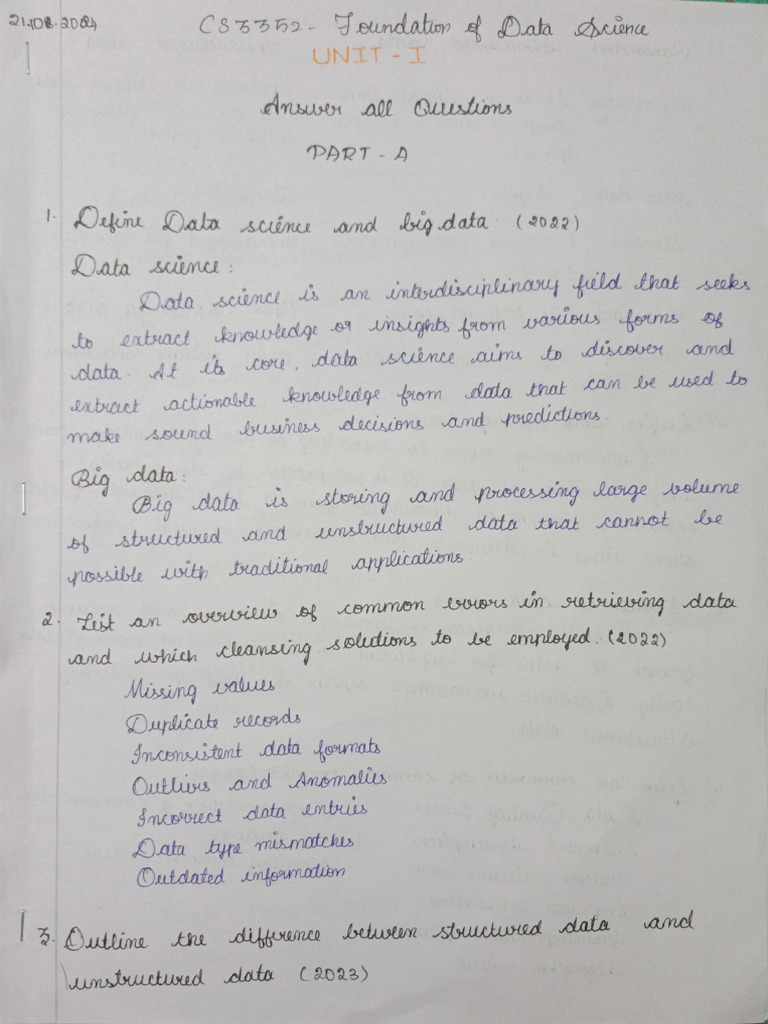 21.08.2024 CS3352 - Foundation of Data Science
UNIT - I
Answer all Questions
PART - A
1. Define Data science and big data: (2022)
Data science:
Data science is an interdisciplinary field that seeks
to extract knowledge or insights from various forms of
data. At its core, data science aims to discover and
extract actionable knowledge from data that can be used to
make sound business decisions and predictions.
Big data:
Big data is storing and processing large volume
of structured and unstructured data that cannot be
possible with traditional applications.
2. List an overview of common errors in retrieving data
and which cleansing solutions to be employed. (2022)
Missing values
Duplicate records
Inconsistent data formats
Outliers and Anomalies
Incorrect data entries
Data type mismatches
Outdated information
3. Outline the difference between structured data and
unstructured data (2023)